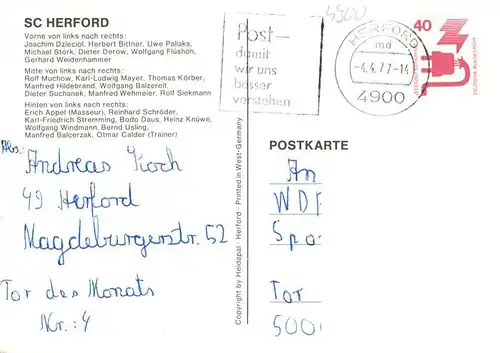 SC HERFORD
Vorne von links nach rechts:
Joachim Dzieciol, Herbert Bittner, Uwe Pallaks,
Michael Stork, Dieter Derow, Wolfgang Flüshöh,
Gerhard Weidenhammer
Mitte von links nach rechts:
Rolf Muchow, Karl-Ludwig Mayer, Thomas Körber,
Manfred Hildebrand, Wolfgang Balzereit,
Dieter Suchanek, Manfred Wehmeier, Rolf Siekmann
Hinten von links nach rechts:
Erich Appet (Masseur), Reinhard Schröder,
Karl-Friedrich Stremming, Bodo Daus, Heinz Knüwe,
Wolfgang Windmann, Bernd Usling,
Manfred Balcerzak, Otmar Calder (Trainer)
Abs.:
Andreas Koch
49 Herford
Magdeburgerstr. 52
Tor des Monats
Nr.: 4
Copyright by Heidapal · Herford · Printed in West-Germany
Post-
damit
wir uns
besser
verstehen
4900
HERFORD
md
-4.4.77-14
4900
40
DEUTSCHE BUNDESPOST
POSTKARTE
An
WD
Spo
Tor
500